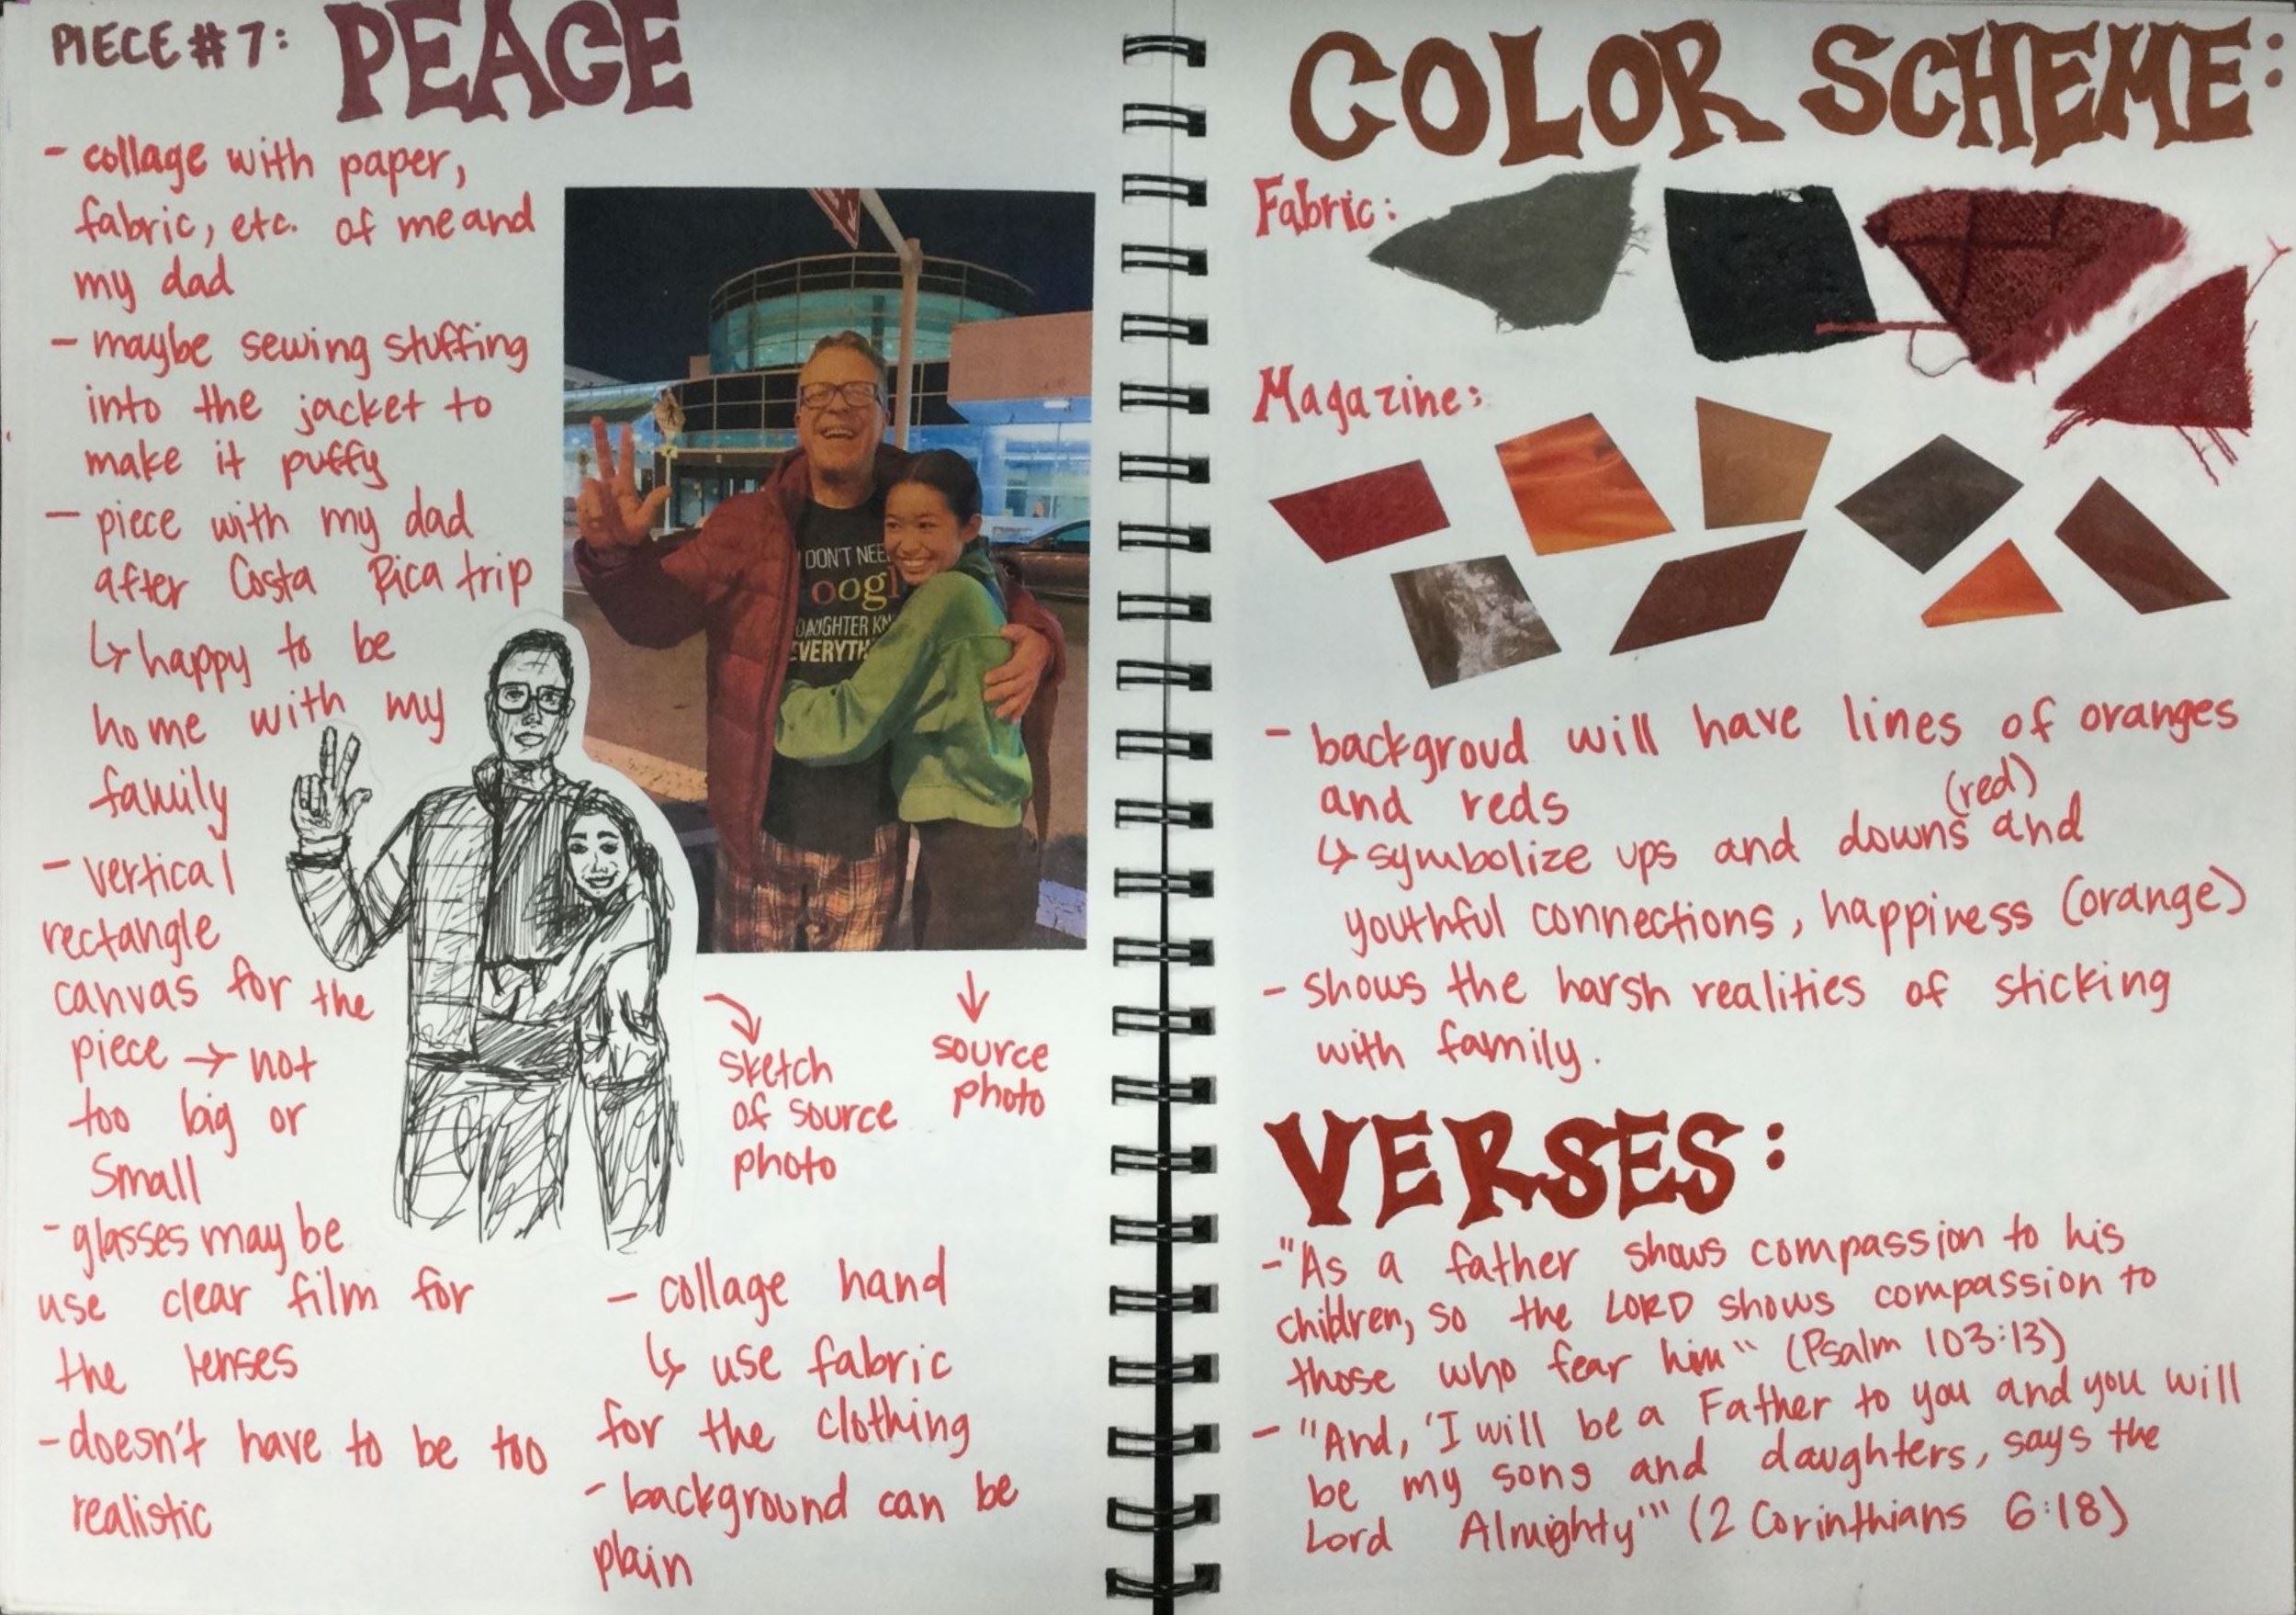 PIECE #7: PEACE
- collage with paper,
fabric, etc. of me and
my dad
- maybe sewing stuffing
into the jacket to
make it puffy
- piece with my dad
after Costa Rica trip
↳ happy to be
home with my
family
- vertical
rectangle
canvas for the
piece → not
too big or
small
- glasses may be
use clear film for
the lenses
- doesn't have to be too
realistic
DON'T NEE
oogl
DAUGHTER KN
EVERYTH
sketch
of source
photo
source
photo
- collage hand
↳ use fabric
for the clothing
- background can be
plain
COLOR SCHEME:
Fabric:
Magazine:
- backgroud will have lines of oranges
and reds
↳ symbolize ups and downs (red) and
youthful connections, happiness (orange)
- shows the harsh realities of sticking
with family.
VERSES:
- "As a father shows compassion to his
children, so the LORD shows compassion to
those who fear him" (Psalm 103:13)
- "And, 'I will be a Father to you and you will
be my sons and daughters, says the
Lord Almighty'" (2 Corinthians 6:18)